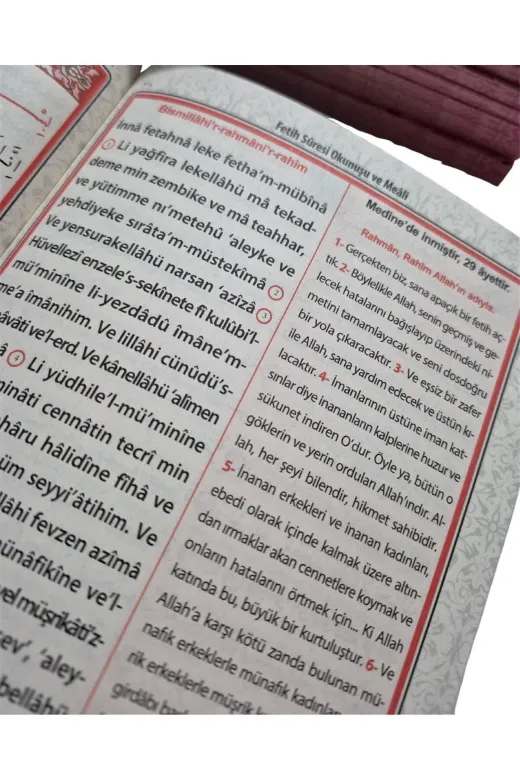 Fetih Sûresi Okunuşu ve Meâli
Bismillâhi'r-rahmâni'r-rahîm
İnnâ fetahnâ leke fetha'm-mübînâ
① Li yağfira lekellâhü mâ tekad-
deme min zembike ve mâ teahhar,
ve yütimme nı'metehû 'aleyke ve
yehdiyeke sırâta'm-müstekîmâ ②
Ve yensurakellâhü narsan 'azîzâ ③
Hüvellezî enzele's-sekînete fî kulûbi'l-
mü'minîne li-yezdâdû îmâne'm-
me'a îmânihim. Ve lillâhi cünûdü's-
vâti ve'l-erd. Ve kânellâhü 'alîmen
④ Li yüdhile'l-mü'minîne
minâti cennâtin tecrî min
hâru hâlidîne fîhâ ve
üm seyyi'âtihim. Ve
llâhi fevzen azîmâ
münâfikîne ve'l-
vel müşrikâti'z-
ev', 'aley-
bellâhü
Medine'de inmiştir, 29 âyettir.
Rahmân, Rahîm Allah'ın adıyla.
1- Gerçekten biz, sana apaçık bir fetih aç-
tık. 2- Böylelikle Allah, senin geçmiş ve ge-
lecek hatalarını bağışlayıp üzerindeki ni-
metini tamamlayacak ve seni dosdoğru
bir yola çıkaracaktır. 3- Ve eşsiz bir zafer
ile Allah, sana yardım edecek ve üstün kı-
lacaktır. 4- İmanlarının üstüne iman kat-
sınlar diye inananların kalplerine huzur ve
sükunet indiren O'dur. Öyle ya, bütün o
göklerin ve yerin orduları Allah'ındır. Al-
lah, her şeyi bilendir, hikmet sahibidir.
5- İnanan erkekleri ve inanan kadınları,
ebedi olarak içinde kalmak üzere altın-
dan ırmaklar akan cennetlere koymak ve
onların hatalarını örtmek için... Ki Allah
katında bu, büyük bir kurtuluştur. 6- Ve
Allah'a karşı kötü zanda bulunan mü-
nafık erkeklerle münafık kadınları
rik erkeklerle müşrik k
girdâbı ba